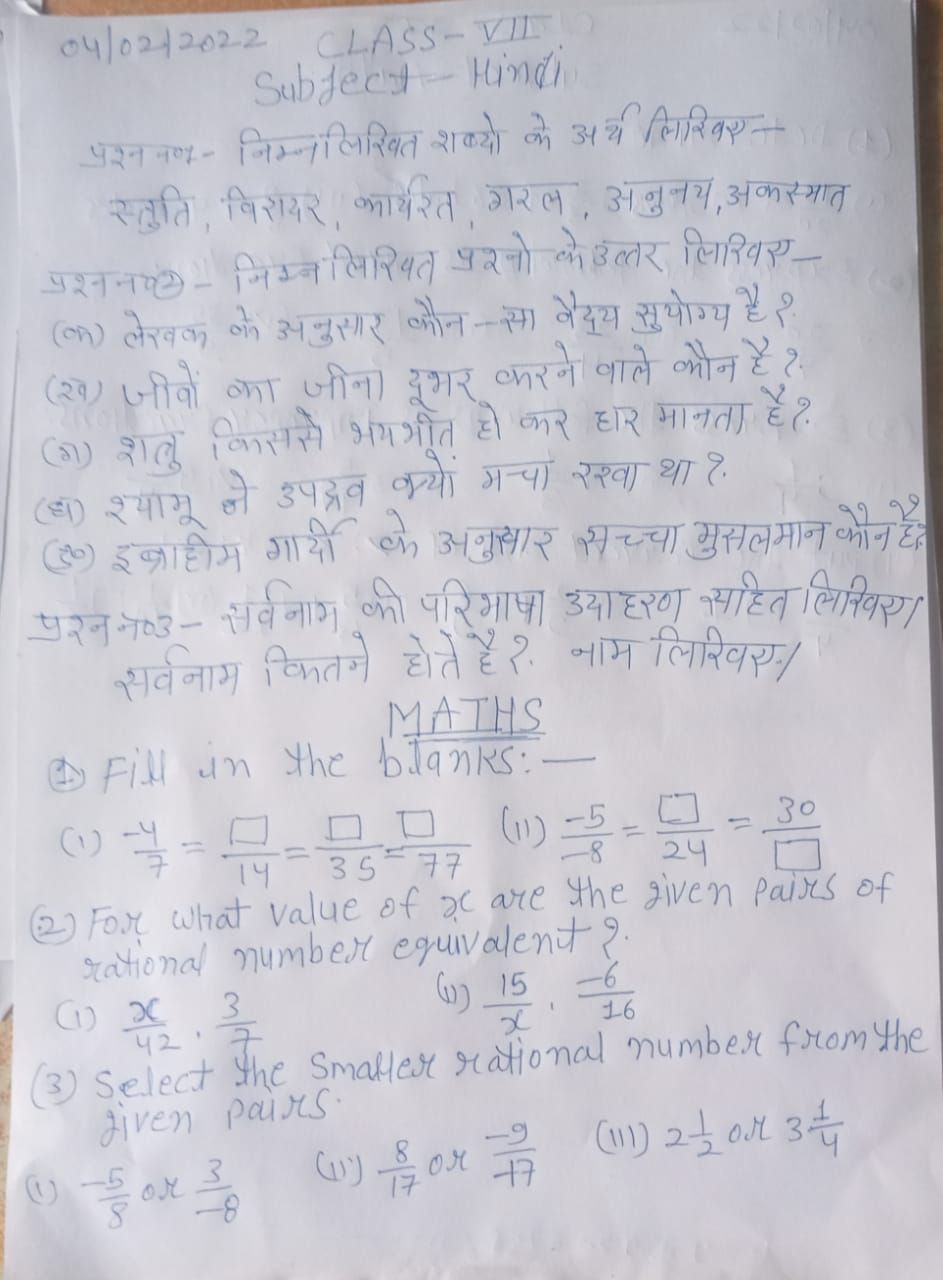 04/02/2022 CLASS- VII
Subject - Hindi
प्रश्न न०१- निम्नलिखित शब्दो के अर्थ लिखिए-
स्तुति, विरादर, कार्यरत, गरल, अनुनय, अकस्मात
प्रश्न न०२- निम्नलिखित प्रश्नो के उत्तर लिखिए-
(क) लेखक के अनुसार कौन-सा वैद्य सुयोग्य है?
(ख) जीवों का जीना दूभर करने वाले कौन है?
(ग) शत्रु किससे भयभीत हो कर हार मानता है?
(घ) श्यामू ने उपद्रव क्यों मचा रखा था?
(ङ) इब्राहीम गार्दी के अनुसार सच्चा मुसलमान कौन है?
प्रश्न न०3- सर्वनाम की परिभाषा उदाहरण सहित लिखिए।
सर्वनाम कितने होते है? नाम लिखिए।
MATHS
(1) Fill in the blanks:—
(i) -4/7 = □/14 = □/35 = □/77 (ii) -5/-8 = □/24 = 30/□
(2) For what value of x are the given pairs of
rational number equivalent?
(i) x/42, 3/7 (ii) 15/x, -6/16
(3) Select the smaller rational number from the
given pairs.
(i) -5/8 or 3/-8 (ii) 8/17 or -9/-17 (iii) 2 1/2 or 3 1/4